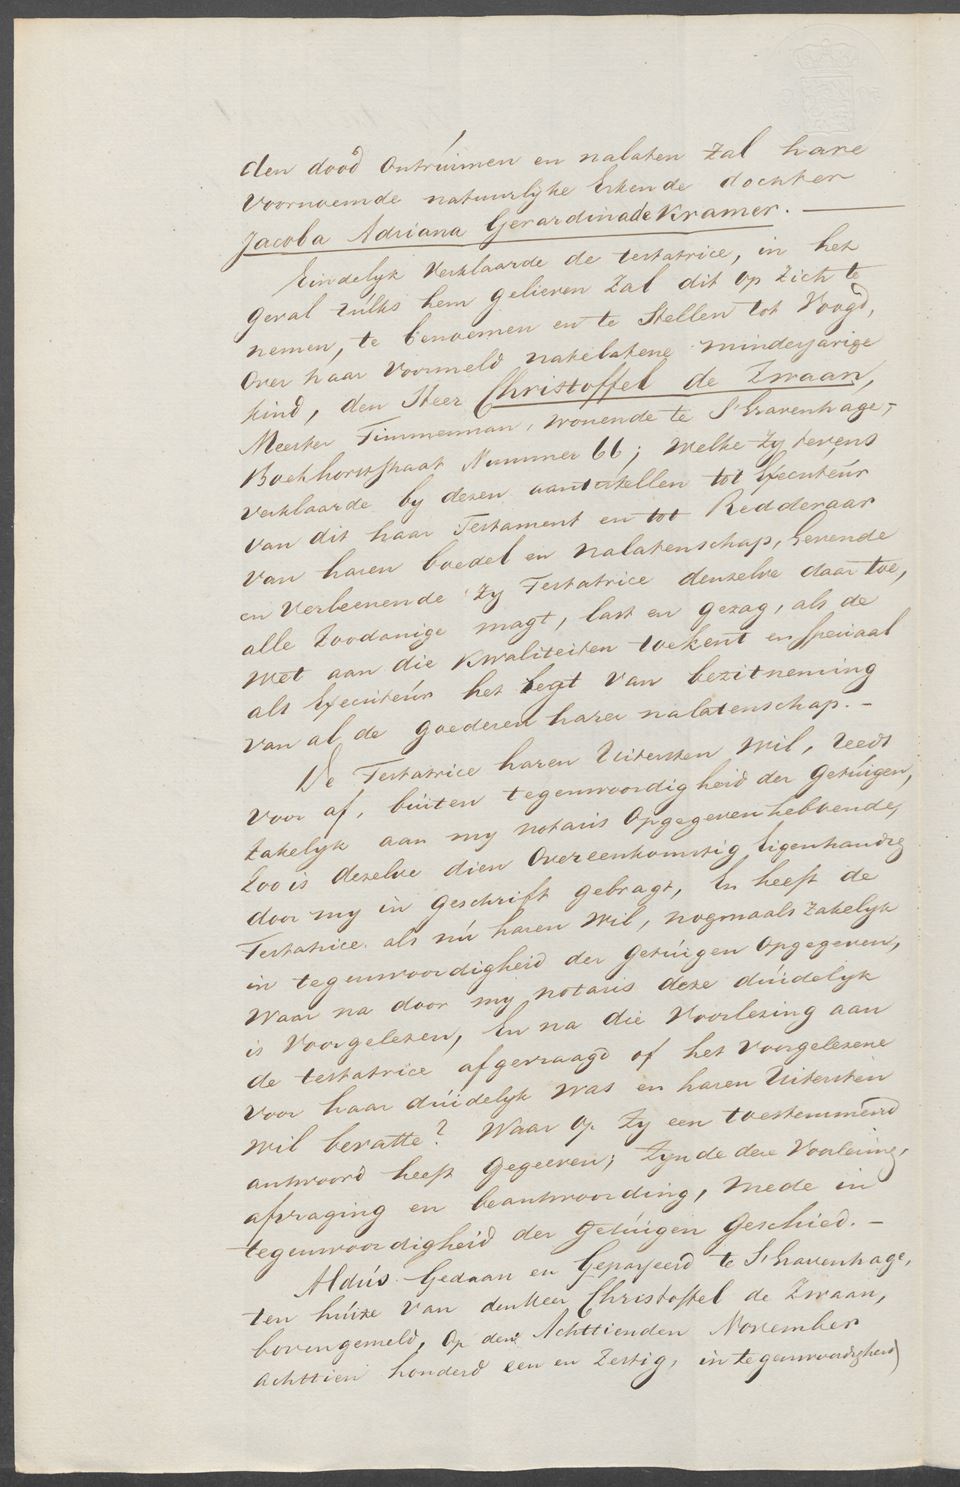 den dood ontruimen en nalaten zal hare
voornoemde natuurlijke Erkende dochter
Jacoba Adriana Gerardina de Kramer. —
Eindelyk verklaarde de testatrice, in het
geval zulks hem gelieven zal dit op zich te
nemen, te benoemen en te stellen tot Voogd,
over haar voormeld natelatene minderjarige
kind, den Heer Christoffel de Zwaan,
Meester Timmerman, wonende te S'Gravenhage,
Boekhorststraat Nummer 66; welke zy tevens
verklaarde by dezen aantestellen tot Executeúr
van dit haar Testament en tot Redderaar
van haren boedel en nalatenschap, Gevende
en verleenende zy Testatrice denzelve daartoe,
alle zoodanige magt, last en gezag, als de
wet aan die kwaliteiten toekent en speciaal
als Executeúr het regt van bezitneming
van al de goederen harer nalatenschap. —
De Testatrice haren Uitersten wil, reeds
voor af, búiten tegenwoordigheid der getúigen,
zakelyk aan my notaris opgegeven hebbende,
Zoo is dezelve dien overeenkomstig Eigenhandig
door my in geschrift gebragt, En heeft de
Testatrice als nú haren wil, nogmaals zakelyk
in tegenwoordigheid der getúigen opgegeven,
waar na door my notaris deze dúidelyk
is voorgelezen, En na die voorlezing aan
de testatrice afgevraagd of het voorgelezene
voor haar dúidelyk was en haren Uitersten
wil bevatte? Waar op zy een toestemmend
antwoord heeft gegeven; zynde deze voorlezing,
afvraging en beantwoording, mede in
tegenwoordigheid der getúigen geschied. —
Aldús Gedaan en Gepasseerd te S'Gravenhage,
ten húize van den Heer Christoffel de Zwaan,
bovengemeld, op den Achttienden November
Achttien honderd een en Zestig, in tegenwoordigheid